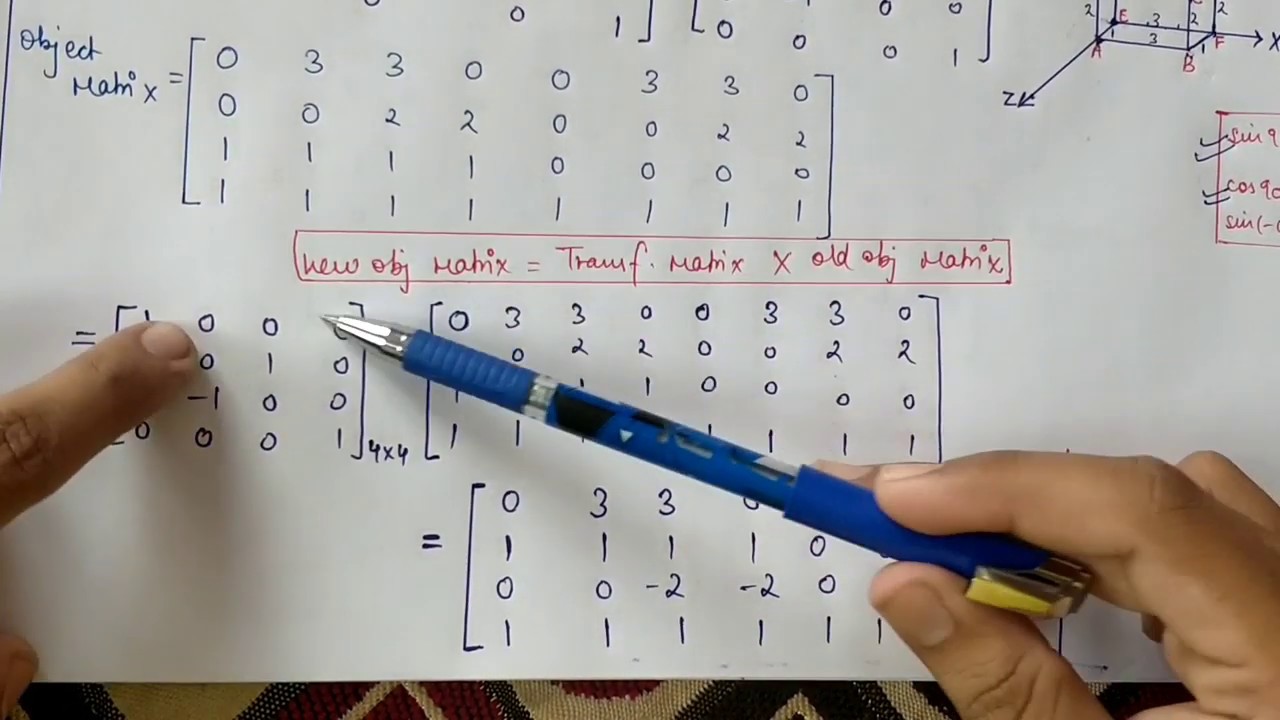 0 0 0
0 1 0 0 1
Object Matrix = 0 3 3 0 0 3 3 0
0 0 2 2 0 0 2 2
1 1 1 1 0 0 0 0
1 1 1 1 1 1 1 1
2 E 3 2 2
1 3 1 X
A B F
Z
sin 9
cos 90
sin(-
New obj Matrix = Transf. Matrix X old obj Matrix
= 1 0 0 0 0 3 3 0 0 3 3 0
0 1 0 0 2 2 0 0 2 2
-1 0 0 1 1 1 0 0 0 0
0 0 0 1 4x4 1 1 1 1 1 1
= 0 3 3
1 1 1 1 0
0 0 -2 -2 0
1 1 1 1 1 1